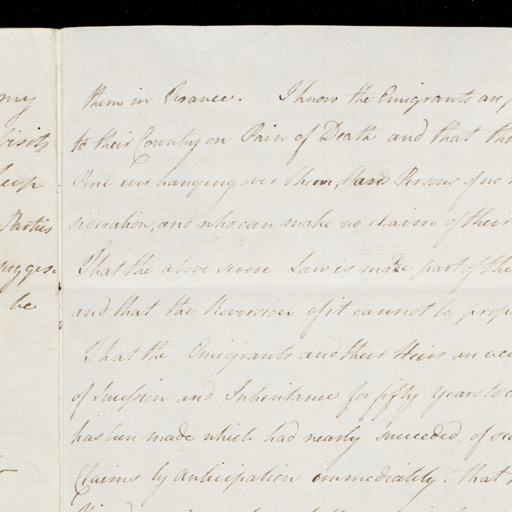 my
visits
keep
Parties
sugges.
be
them in France. I know the Emigrants are
to their Country on Pain of Death and that tho
ever hanging over them, Persons of no
sideration, and who can make no claim of their
That the above severe Law is made part of the
and that the Reversion of it cannot be prop
That the Emigrants and their Heirs an
of Succession and Inheritance for fifty years to
has been made which had nearly succeeded, of
Claims by anticipation immediately. That